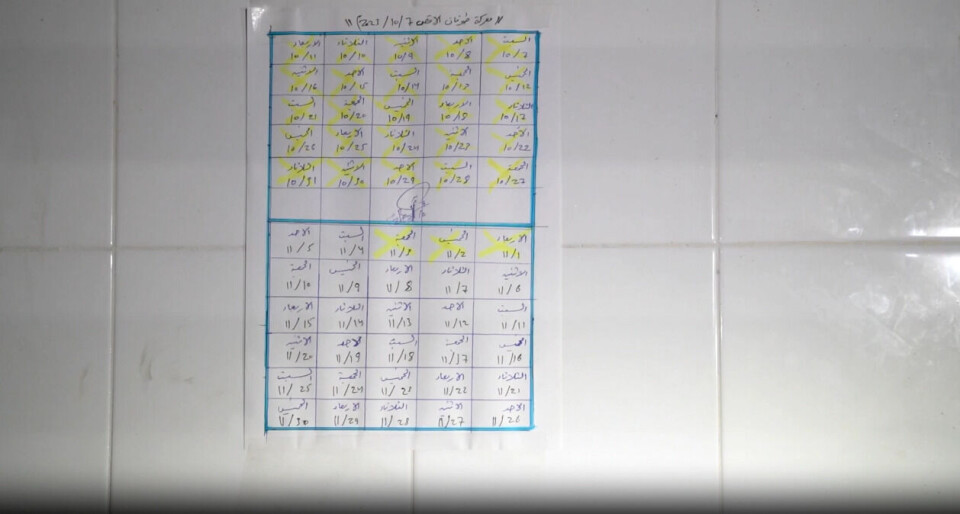 معركة طوفان الاقصى 7/10/2023
السبت الاحد الاثنين الثلاثاء الاربعاء
10/7 10/8 10/9 10/10 10/11
الخميس الجمعة السبت الاحد الاثنين
10/12 10/13 10/14 10/15 10/16
الثلاثاء الاربعاء الخميس الجمعة السبت
10/17 10/18 10/19 10/20 10/21
الاحد الاثنين الثلاثاء الاربعاء الخميس
10/22 10/23 10/24 10/25 10/26
الجمعة السبت الاحد الاثنين الثلاثاء
10/27 10/28 10/29 10/30 10/31
الاربعاء الخميس الجمعة السبت الاحد
11/1 11/2 11/3 11/4 11/5
الاثنين الثلاثاء الاربعاء الخميس الجمعة
11/6 11/7 11/8 11/9 11/10
السبت الاحد الاثنين الثلاثاء الاربعاء
11/11 11/12 11/13 11/14 11/15
الخميس الجمعة السبت الاحد الاثنين
11/16 11/17 11/18 11/19 11/20
الثلاثاء الاربعاء الخميس الجمعة السبت
11/21 11/22 11/23 11/24 11/25
الاحد الاثنين الثلاثاء الاربعاء الخميس
11/26 11/27 11/28 11/29 11/30